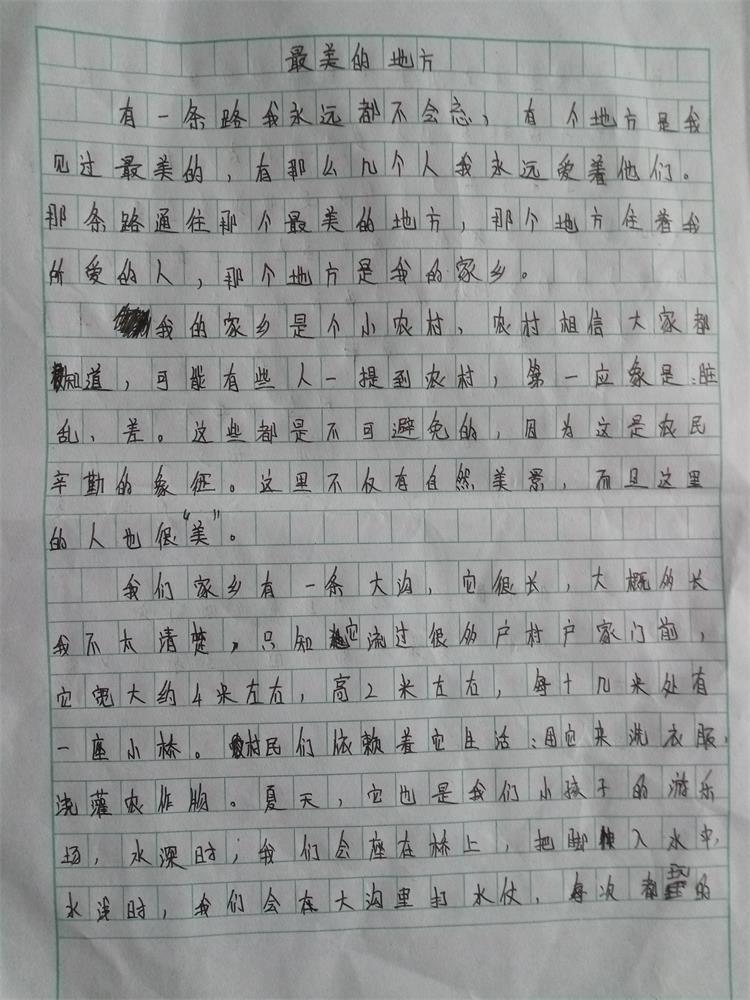 最美的地方
有一条路我永远都不会忘，有个地方是我
见过最美的，有那么几个人我永远爱着他们。
那条路通往那个最美的地方，那个地方住着我
所爱的人，那个地方是我的家乡。
我的家乡是个小农村、农村相信大家都
知道，可能有些人一提到农村，第一应象是：脏
乱、差。这些都是不可避免的，因为这是农民
辛勤的象征。这里不仅有自然美景，而且这里
的人也很“美”。
我们家乡有一条大沟，它很长，大概多长
我不太清楚，只知它流过很多户村户家门前，
它宽大约4米左右，高2米左右，每十几米处有
一座小桥。村民们依赖着它生活：用它来洗衣服，
浇灌农作物。夏天，它也是我们小孩子的游乐
场，水深时；我们会座在桥上，把脚伸入水中，
水浅时，我们会在大沟里打水仗，每次都玩的